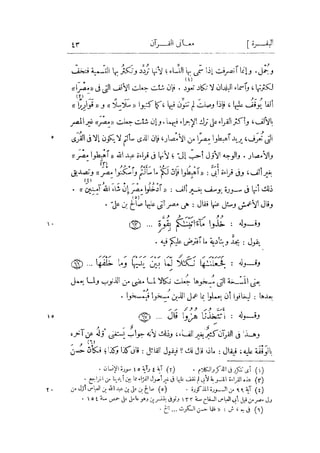 البقرة ] معانى القرآن ٤٣
وجمل. وإنما انصرفت إذا سمى بها النساء؛ لأنها تردد وتكثر بها التسمية فتخف
لكثرتها، وأسماء البلدان لا تكاد تعود. فإن شئت جعلت الألف التى فى «مصرا»
ألفا يوقف عليها، فإذا وصلت لم تنون فيها، كما كتبوا «سلاسلا» و «قواريرا»
بالألف، وأكثر القراء على ترك الإجراء فيهما. وإن شئت جعلت «مصر» غير المصر
التى تعرف، يريد اهبطوا مصرا من الأمصار، فإن الذى سألتم لا يكون إلا فى القرى
والأمصار. والوجه الأول أحب إلى؛ لأنها فى قراءة عبد الله «اهبطوا مصر»
بغير ألف، وفى قراءة أبى: «اهبطوا فإن لكم ما سألتم واسكنوا مصر» وتصديق
ذلك أنها فى سورة يوسف بغير ألف: «ادخلوا مصر إن شاء الله آمنين».
وقال الأعمش وسئل عنها فقال: هى مصر التى عليها صالح بن على.
وقوله: خذوا ما آتيناكم بقوة ...
يقول: بجد وبتأدية ما افترض عليكم فيه.
وقوله: فجعلناها نكالا لما بين يديها وما خلفها ...
يعنى المسخة التى مسخوها جعلت نكالا لما مضى من الذنوب ولما يعمل
بعدها: ليخافوا أن يعملوا بما عمل الذين مسخوا فيمسخوا.
وقوله: أتتخذنا هزوا قال ...
وهذا فى القرآن كثير بغير الفاء، وذلك لأنه جواب يستغنى أوله عن آخره
بالوقفة عليه، فيقال: ماذا قال لك؟ فيقول القائل: قال كذا وكذا؛ فكأن حسن
(٢) آية ٤ و آية ١٥ سورة الإنسان.
(٤) آية ٩٩ من السورة المذكورة. (٥) صالح بن على بن عبد الله بن العباس أول من